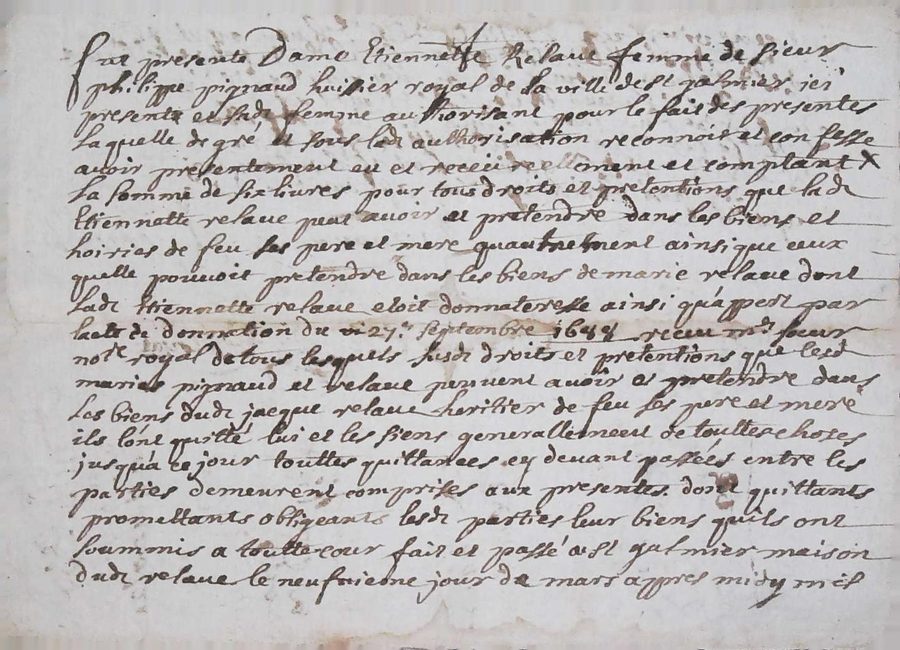 Fut presente Damo Etiennette Relave femme de sieur
philippe pignaud huissier royal de la ville de st galmier ici
present et sadt femme authorisant pour le fait des presentes
laquelle de gré et sous ladt authorisation reconnoit et confesse
avoir presentement eu et receu reellement et comptant x
la somme de six livres pour tous droits et pretentions que ladt
Etiennette relave peut avoir et pretendre dans les biens et
hoiries de feu ses pere et mere quautrement ainsi que ceux
quelle pouvoit pretendre dans les biens de marie relave dont
ladt Etiennette relave etoit donnateresse ainsi qu'appert par
lacte de donnation du 27e septembre 1688 receu md
notre royal de tous lesquels susdt droits et pretentions que lesdt
maries pignaud et relave peuvent avoir et pretendre dans
les biens dudt jacque relave heritier de feu ses pere et mere
ils lont quitté lui et les siens generallement de touttes choses
jusqua ce jour touttes quittances cy devant passées entre les
parties demeurent comprises aux presentes. dont quittants
promettants obligeants lesdt parties leur biens quils ont
soummis a toutte cour fait et passé a st galmier maison
dudt relave le neufvieme jour de mars appres midy mil